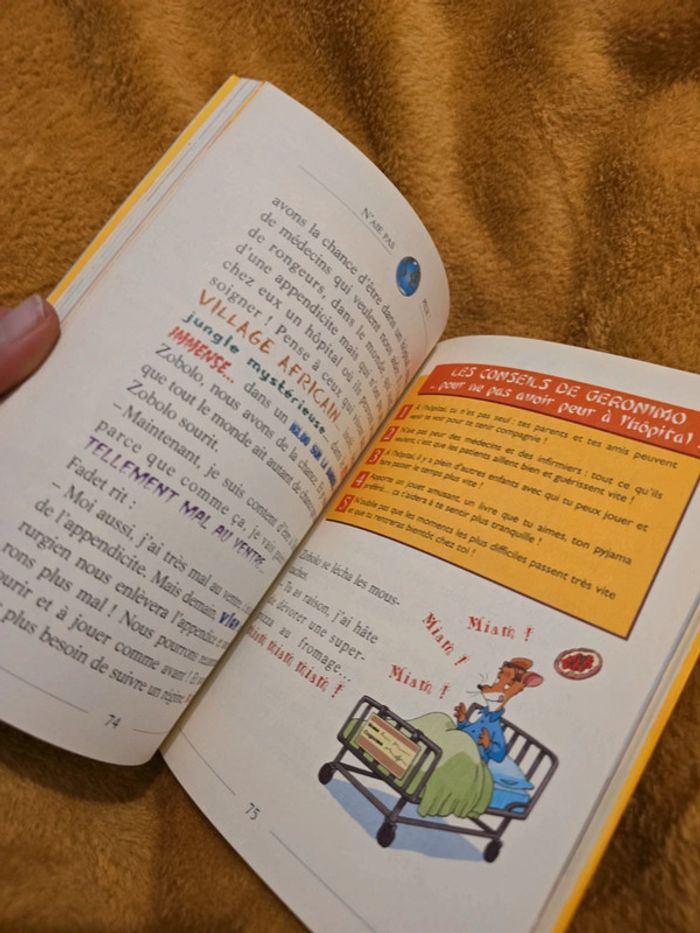 N'AIE PAS
avons la chance d'être dans un
de médecins qui veulent nous
de rongeurs, dans le monde, qui
d'une appendicite mais qui n'ont
chez eux un hôpital où ils
soigner ! Pense à ceux qui
VILLAGE AFRICAIN,
jungle mystérieuse
IMMENSE... dans un
Zobolo, nous avons de la chance, il
que tout le monde ait autant de
Zobolo sourit.
– Maintenant, je suis content d'en
parce que comme ça, je vais
TELLEMENT MAL AU VENTRE...
Fadet rit :
– Moi aussi, j'ai très mal au ventre,
de l'appendicite. Mais demain,
rurgien nous enlèvera l'appendice et
rons plus mal ! Nous pourrons
ourir et à jouer comme avant ! Et
plus besoin de suivre un régime !
74
LES CONSEILS DE GERONIMO
pour ne pas avoir peur à l'hôpital
1 À l'hôpital, tu n'es pas seul : tes parents et tes amis peuvent
venir te voir pour te tenir compagnie !
2 N'aie pas peur des médecins et des infirmiers : tout ce qu'ils
veulent, c'est que les patients aillent bien et guérissent vite !
3 À l'hôpital, il y a plein d'autres enfants avec qui tu peux jouer et
faire passer le temps plus vite !
4 Apporte un jouet amusant, un livre que tu aimes, ton pyjama
préféré... ça t'aidera à te sentir plus tranquille !
5 N'oublie pas que les moments les plus difficiles passent très vite
et que tu rentreras bientôt chez toi !
Zobolo se lécha les mous-
taches.
– Tu as raison, j'ai hâte
de dévorer une super-
pizza au fromage...
miam, miam, miam !
Miam !
Miam !
Miam !
75